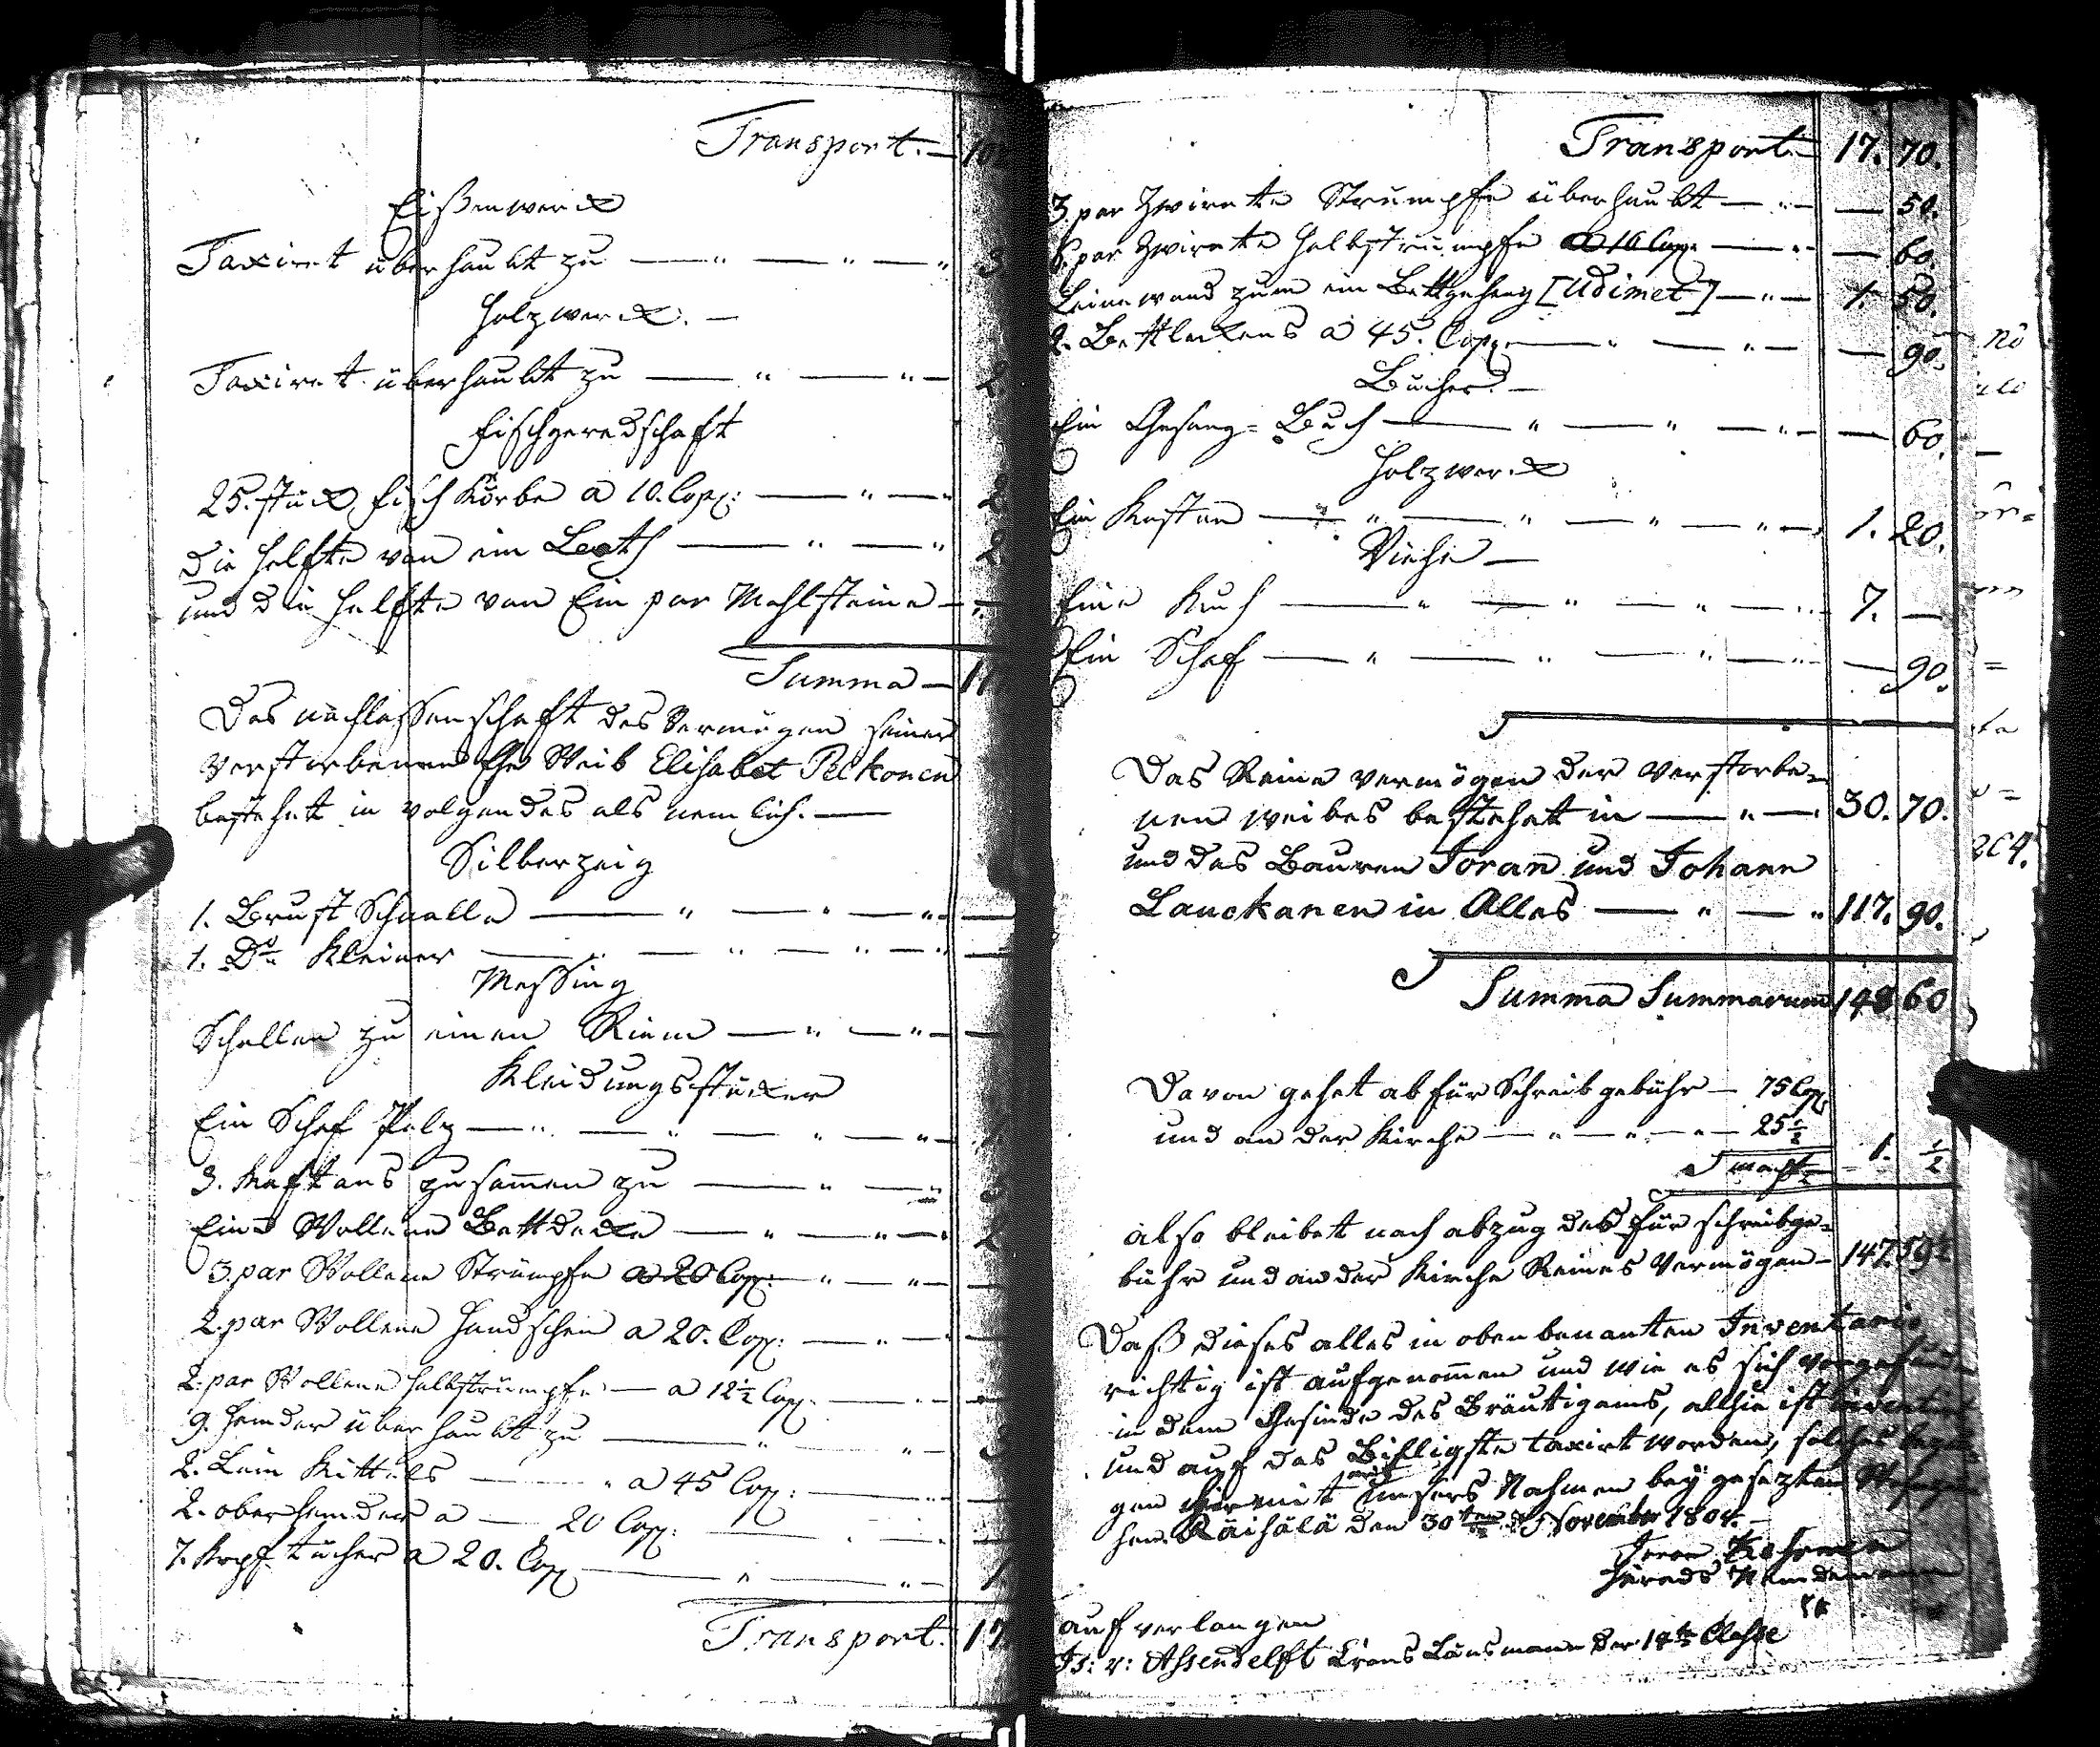 Transport.
Eißenwerck
Taxiret überhaubt zu
Holzwerck.
Taxiret überhaubt zu
Fischgeredschaft
25. stück fisch Körbe a 10. Cop:
die helfte von ein Both
und die helfte von Ein par Mahlsteine
Summa
Das nachlassenschaft des Vermögen seiner
verstorbenen Ehe Weib Elisabet Pelkonen
bestehet in volgendes als nemlich.
Silberzeig
1. Brust Schnalle
1. Do kleiner
Messing
Schallen zu einen Riem
Kleidungsstücker
Ein Schaf Pelz
3. Kaftans zusamen zu
Eine Wollene Bettdecke
3. par Wollene Strümpfe a 20 Cop:
2. par Wollene Handschen a 20. Cop:
2. par Wollene halbstrümpfe a 12½ Cop:
9. Hemder überhaubt zu
2. Lein Kittels a 45 Cop:
2. oberhemder a 20 Cop:
7. Kopf tücher a 20. Cop
Transport.
Transport 17. 70.
3. par Zwirnte Strümpfe überhaubt 50.
6. par Zwirnte halbstrümpfe a 10 Cop: 60.
Leinewand zum ein Bettgeheng [Udimet] 1. 50.
2. Bettlackens a 45. Cop: 90.
Bücher.
Ein Gesang-Buch 60.
Holzwerck
Ein Kasten 1. 20.
Viehe
Eine Kuh 7.
Ein Schaf 90.
Das Reine vermögen der verstorbe-
nen weibes bestehet in 30. 70.
und des Bauren Joran und Johann
Lauckanen in Alles 117. 90.
Summa Summarum 148 60
Davon gehet ab für Schreibgebühr 75 Cop
und an der Kirche 25½
macht 1. ½
also bleibet nach abzug des für schreibge-
bühr und an der Kirche Reines Vermögen 147. 59½
Daß dieses alles in obenbenanten Inventario
richtig ist aufgenomen und wie es sich vorgefunden
in dem Gesinde des Bräutigams, allhie ist inventirt
und auf das Billigste taxirt worden, solches bezeu-
gen wir mit unsers Nahmen bey gesezten
Räisälä den 30ten November 1804.
Härads Nämdeman
auf verlangen
v: Assendelft Crons Länsmann der 14te Classe